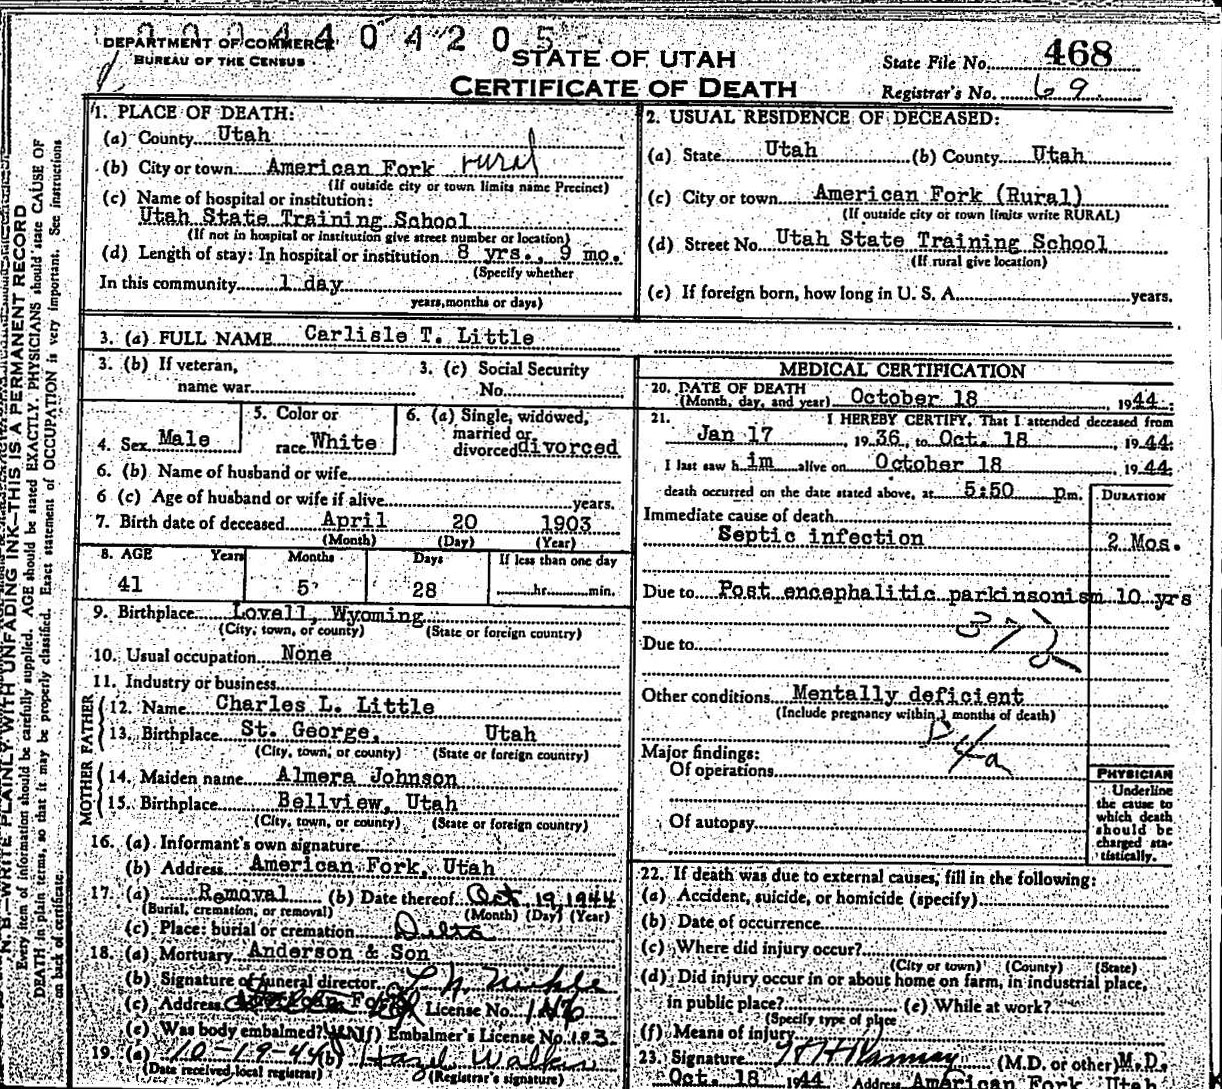 0004404205
DEPARTMENT OF COMMERCE
BUREAU OF THE CENSUS
STATE OF UTAH
CERTIFICATE OF DEATH
State File No. 468
Registrar's No. 69.
N. B.—WRITE PLAINLY WITH UNFADING INK—THIS IS A PERMANENT RECORD
Every item of information should be carefully supplied. AGE should be stated EXACTLY. PHYSICIANS should state CAUSE OF
DEATH in plain terms, so that it may be properly classified. Exact statement of OCCUPATION is very important. See instructions
on back of certificate.
1. PLACE OF DEATH:
(a) County Utah
(b) City or town: American Fork rural
(If outside city or town limits name Precinct)
(c) Name of hospital or institution:
Utah State Training School
(If not in hospital or institution give street number or location)
(d) Length of stay: In hospital or institution 8 yrs., 9 mo.
(Specify whether
In this community 1 day
years, months or days)
2. USUAL RESIDENCE OF DECEASED:
(a) State Utah (b) County Utah
(c) City or town American Fork (Rural)
(If outside city or town limits write RURAL)
(d) Street No. Utah State Training School
(If rural give location)
(e) If foreign born, how long in U. S. A. years.
3. (a) FULL NAME Carlisle T. Little
3. (b) If veteran,
name war
3. (c) Social Security
No.
4. Sex Male
5. Color or
race White
6. (a) Single, widowed,
married or
divorced divorced
6. (b) Name of husband or wife
6 (c) Age of husband or wife if alive years.
7. Birth date of deceased April 20 1903
(Month) (Day) (Year)
8. AGE Years Months Days If less than one day
41 5 28 hr. min.
9. Birthplace Lovell, Wyoming
(City, town, or county) (State or foreign country)
10. Usual occupation None
11. Industry or business
FATHER
12. Name Charles L. Little
13. Birthplace St. George, Utah
(City, town, or county) (State or foreign country)
MOTHER
14. Maiden name Almera Johnson
15. Birthplace Bellview, Utah
(City, town, or county) (State or foreign country)
16. (a) Informant's own signature
(b) Address American Fork, Utah
17. (a) Removal (b) Date thereof Oct 19, 1944
(Burial, cremation, or removal) (Month) (Day) (Year)
(c) Place: burial or cremation Delta
18. (a) Mortuary Anderson & Son
(b) Signature of funeral director
(c) Address American Fork License No. 146
(e) Was body embalmed? (f) Embalmer's License No. 103
19. (a) 10-19-44 (b) Hazel Walker
(Date received local registrar) (Registrar's signature)
MEDICAL CERTIFICATION
20. DATE OF DEATH
(Month, day, and year) October 18 1944.
21. I HEREBY CERTIFY, That I attended deceased from
Jan 17 1936, to Oct. 18 1944.
I last saw him alive on October 18 1944.
death occurred on the date stated above, at 5:50 pm.
DURATION
Immediate cause of death
Septic infection 2 Mos.
Due to Post encephalitic parkinsonism 10 yrs
Due to
Other conditions Mentally deficient
(Include pregnancy within 3 months of death)
Major findings:
Of operations
Of autopsy
PHYSICIAN
Underline
the cause to
which death
should be
charged sta-
tistically.
22. If death was due to external causes, fill in the following:
(a) Accident, suicide, or homicide (specify)
(b) Date of occurrence
(c) Where did injury occur?
(City or town) (County) (State)
(d) Did injury occur in or about home on farm, in industrial place,
in public place? (e) While at work?
(Specify type of place
(f) Means of injury
23. Signature (M.D. or other) M.D.
Oct. 18 1944 Address American Fork